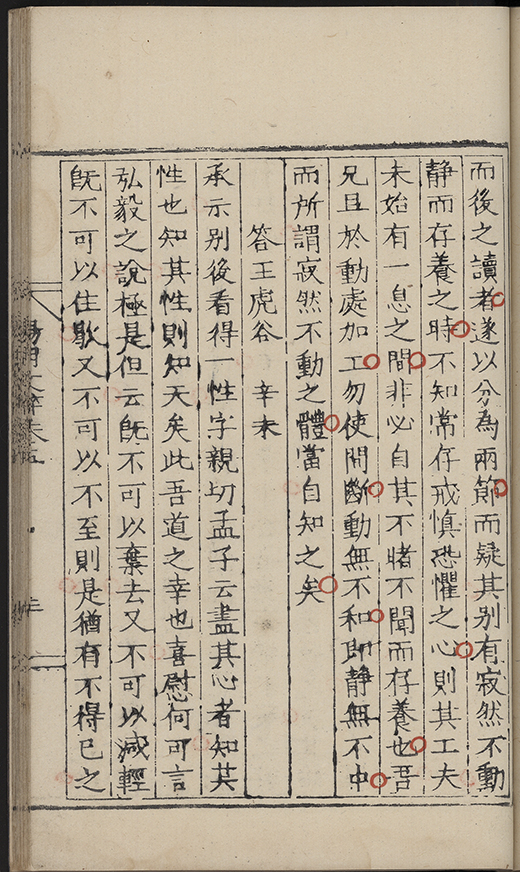 而後之讀者遂以分為兩節而疑其别有寂然不動
静而存養之時不知常存戒慎恐懼之心則其工夫
未始有一息之間非必自其不睹不聞而存養也吾
兄且於動處加工勿使間斷動無不和即静無不中
而所謂寂然不動之體當自知之矣
答王虎谷 辛未
承示别後看得一性字親切孟子云盡其心者知其
性也知其性則知天矣此吾道之幸也喜慰何可言
弘毅之說極是但云旣不可以棄去又不可以減輕
旣不可以住歇又不可以不至則是猶有不得已之
陽明文
卷五